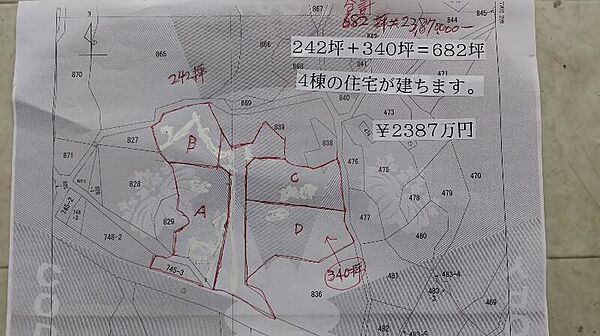 合計
682坪=23,870,000-
242坪+340坪=682坪
4棟の住宅が建ちます。
¥2387万円
242坪
845
846
844
867
865
870
869
839
838
827
B
871
828
829
A
C
D
476
475
478
479
477
470
480
748-2
745-2
745-3
340坪
836
481
483-4
482
469